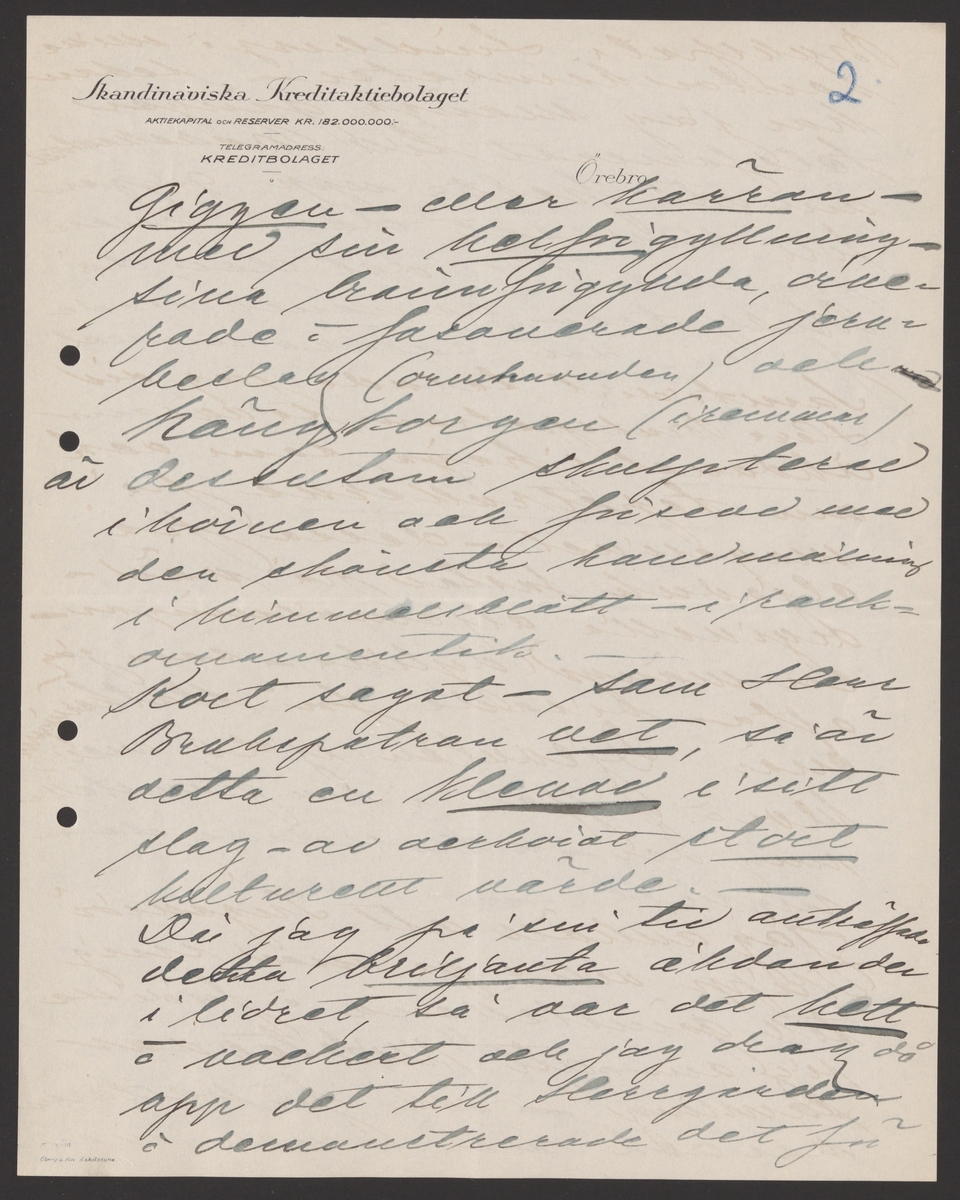 2.
Skandinaviska Kreditaktiebolaget
AKTIEKAPITAL OCH RESERVER KR. 182.000.000:-
TELEGRAMADRESS:
KREDITBOLAGET
Örebro
Giggen – eller kärran –
med sin helförgyllning –
sina brännförgyllda, orne-
rade – fasonerade jern-
beslag (ormhuvuden) och
hängkorgen (i remmar)
är dessutom skulpterad
i hörnen och friserad med
den skönsta handmålning
i himmelsblått – i
ornamentik. –
Kort sagot – som Herr
Brukspatron vet, så är
detta en klenod i sitt
slag – av oerhördt stort
kulturellt värde. –
Då jag på sin tid anträffade
detta briljanta åkdon der
i lidret, så var det helt
o vackert och jag drog då
upp det till Herrgården
o demonstrerade det för